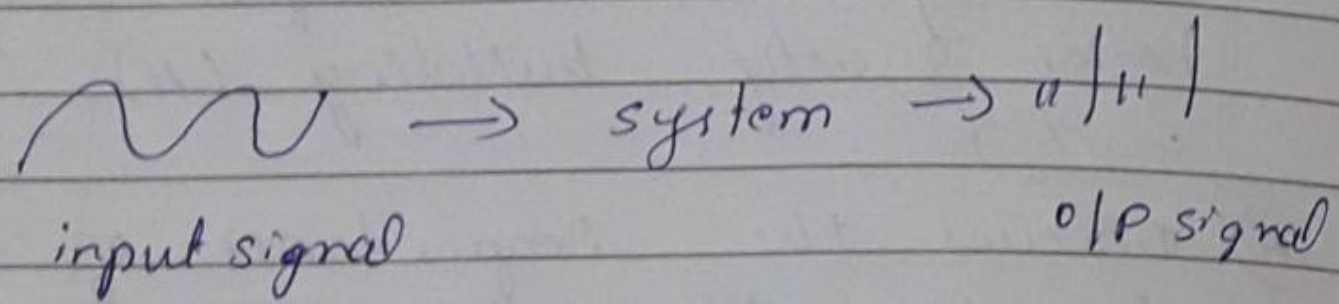 → system →
input signal
O/P signal